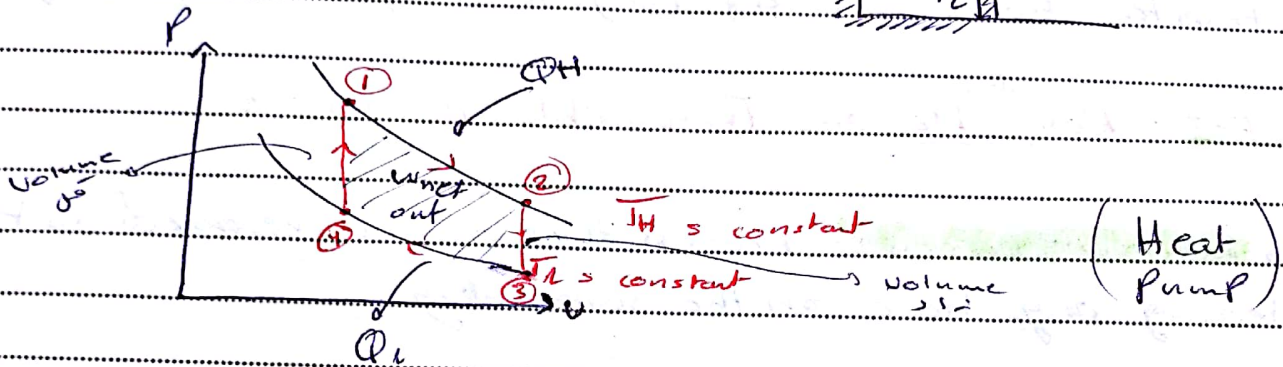 P
QH
①
volume
قل
wnet
out
②
TH = constant
④
TL = constant
③
volume
زاد
v
QL
(Heat
Pump)